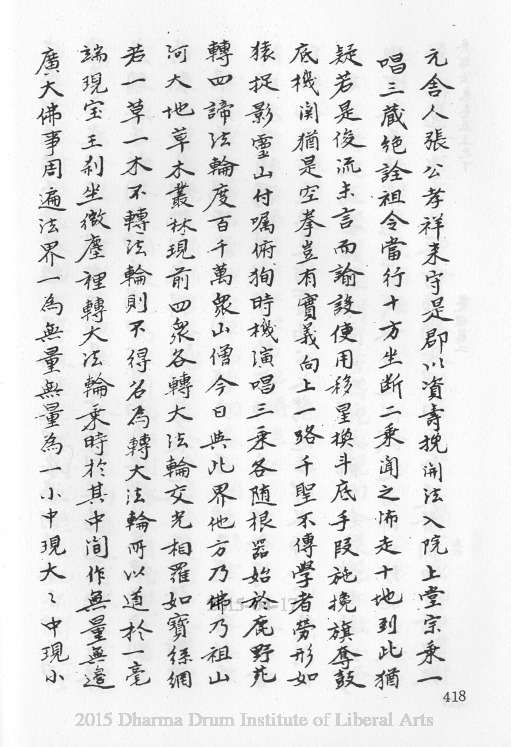 元舍人張公孝祥来守是郡以資壽挽開法入院上堂宗乘一
唱三藏絶詮祖令當行十方坐断二乘聞之怖走十地到此猶
疑若是俊流未言而諭設使用移星換斗底手段施攙旗奪鼓
底機関猶是空拳豈有實義向上一路千聖不傳學者勞形如
猿捉影靈山付嘱俯狥時機演唱三乘各随根器始於鹿野苑
轉四諦法輪度百千萬衆山僧今日與此界他方乃佛乃祖山
河大地草木叢林現前四衆各轉大法輪交光相羅如寶絲網
若一草一木不轉法輪則不得名為轉大法輪所以道於一毫
端現宝王刹坐微塵裡轉大法輪乗時於其中間作無量無邉
廣大佛事周遍法界一為無量無量為一小中現大〻中現小
418
2015 Dharma Drum Institute of Liberal Arts